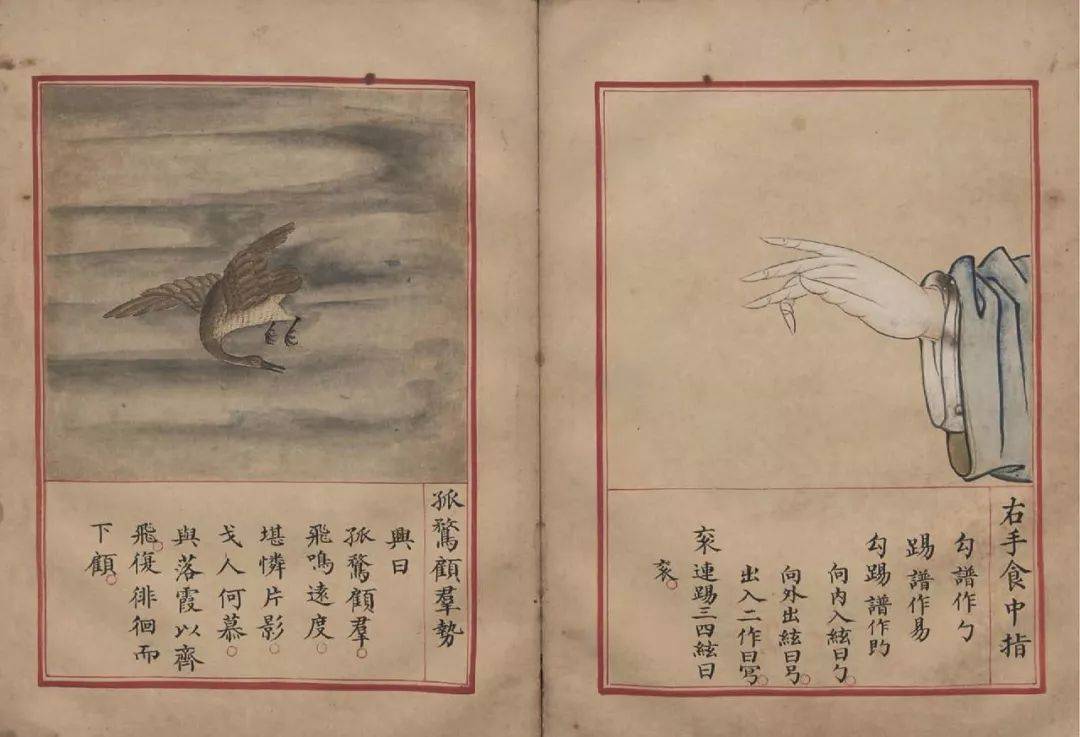 右手食中指
勾譜作勹
踢譜作易
勾踢譜作㫋
向内入絃曰勹
向外出絃曰
出入二作曰
連踢三四絃曰
孤鶩顧羣勢
興曰
孤鶩顧羣
飛鳴遠度
堪憐片影
戈人何慕
與落霞以齊
飛復徘徊而
下顧